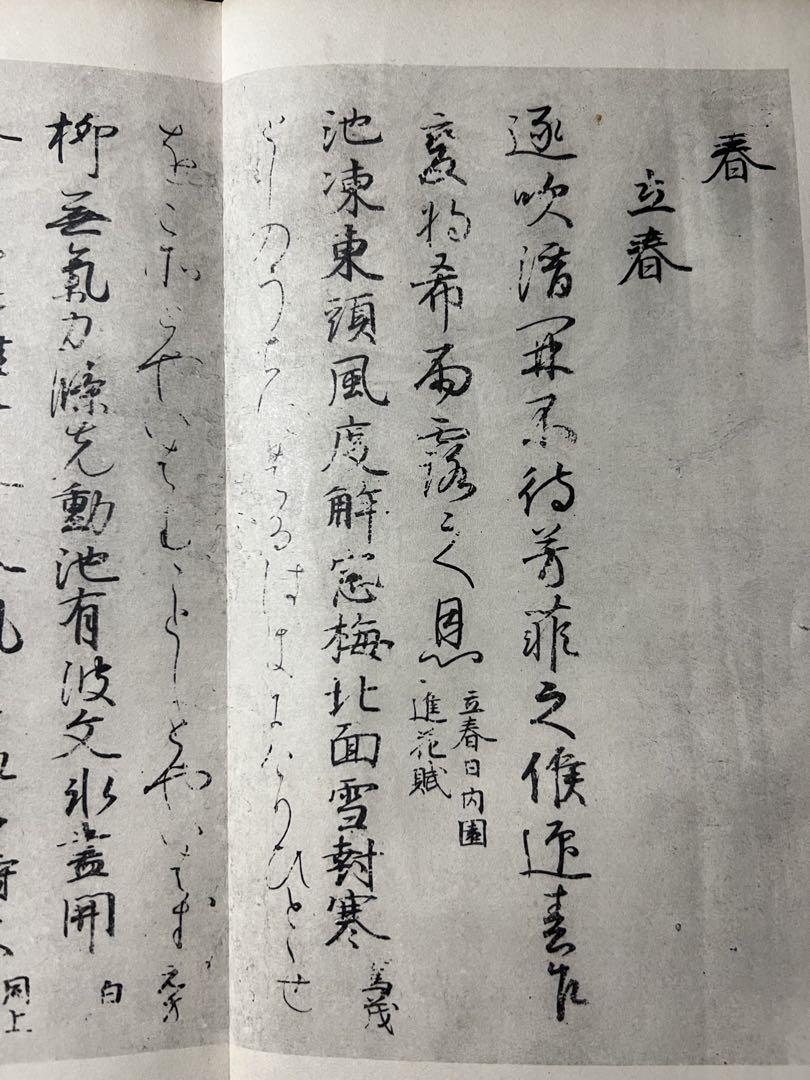 春
立春
逐吹潛開不待芳菲之候迎春乍
變将希雨露之恩
立春日内園
進花賦
池凍東頭風度解窓梅北面雪封寒 篤茂
としのうちにはるはきにけりひとゝせ
をこそとやいはむことしとやいはむ 元方
柳無氣力條先動池有波文氷盡開 白
同上